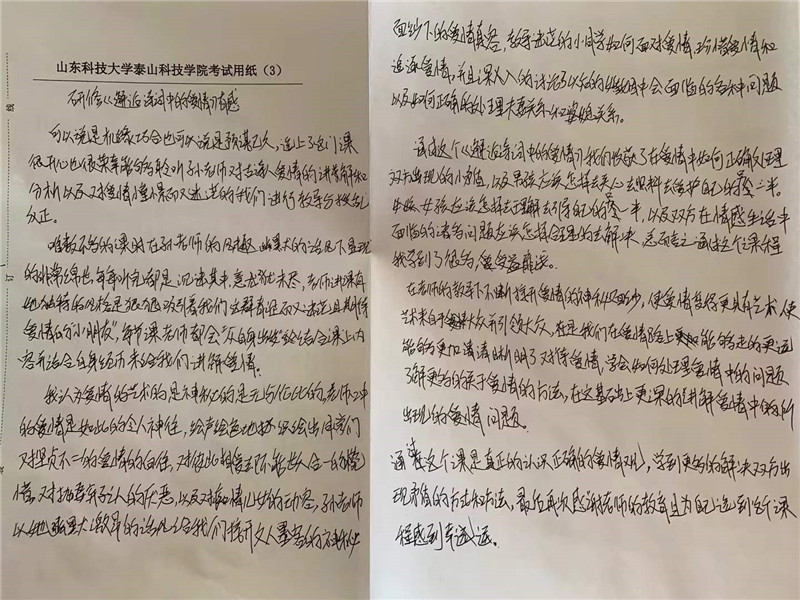 山东科技大学泰山科技学院考试用纸（3）
研修《邂逅诗词中的爱情》有感
可以说是机缘巧合也可以说是预谋已久，选上了这门课
很开心也很荣幸能够聆听孙老师对古诗人爱情的讲解和
分析以及对爱情懵懂而又迷茫的我们进行教导
改正。
唯数不多的课时在孙老师的风趣幽默的话语下显现
的非常绵长，每每听完却是沉迷其中，意犹未尽，老师讲课有
她独特的风格是很吸引着我们这群青涩而又迷茫且期待
爱情的“小朋友”，每节课老师都会“从自身出发”结合课上内
容并结合自身经历来给我们讲解爱情。
我认为爱情的艺术的是神秘的是无与伦比的，老师口中
的爱情是如此的令人神往，绘声绘色地描绘出同学们
对坚贞不一的爱情的向往，对彼此相守至不能共人合一的
情，对抛弃有情人的厌恶，以及对痴情儿女的动容，孙老师
以她幽默大方的话风给我们揭开文人墨客的神秘
面纱下的爱情真容，教导迷茫的小同学如何面对爱情，珍惜爱情和
追逐爱情，并且深入的讨论了以后的婚姻中会面临的各种问题
以及如何正确的处理夫妻关系和婆媳关系。
通过这个《邂逅诗词中的爱情》我们收获了在爱情中如何正确处理
双方出现的小矛盾，以及男孩应该怎样去关心去照料去维护自己的另一半。
女孩应该怎样去理解去引导自己的另一半，以及双方在情感生活中
面临的诸多问题应该怎样合理的去解决，总而言之通过这个课程
我学到了很多，受益匪浅。
在老师的教导下不断揭开爱情的神秘面纱，使爱情变得更具有艺术，使
艺术来自于大众并引领大众，在让我们在爱情路上能够走的更远
能够更加清清晰明了对待爱情，学会如何处理爱情中的问题
了解更多的关于爱情的方法，在这基础上更深的讲解爱情中的所
出现的爱情问题。
通过这个课是真正的认识正确的爱情观，学到更多的解决双方出
现矛盾的方式和方法，最后再次感谢老师的教育且为自己选到这个课
程感到幸运。
线
订